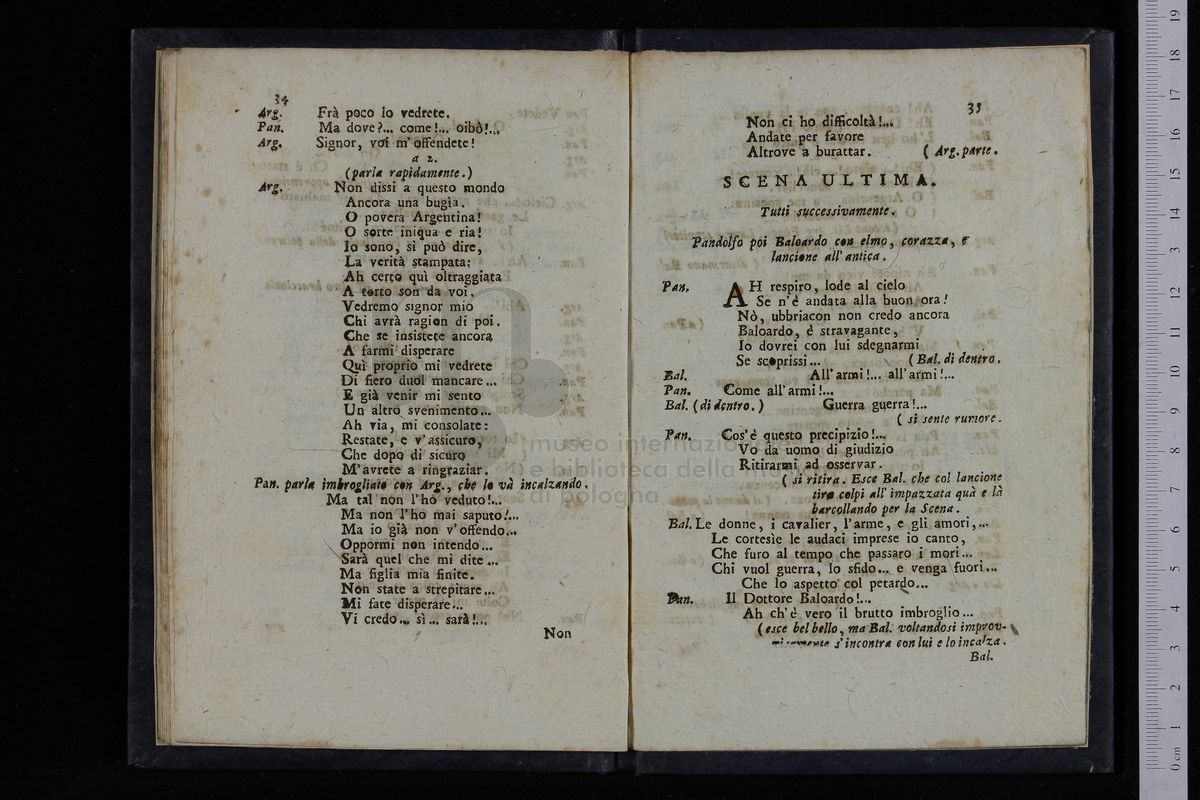 34
Arg. Frà poco lo vedrete.
Pan. Ma dove?... come!... oibò!...
Arg. Signor, voi m'offendete!
a 2.
(parla rapidamente.)
Arg. Non dissi a questo mondo
Ancora una bugìa.
O povera Argentina!
O sorte iniqua e ria!
Io sono, si può dire,
La verità stampata;
Ah certo quì oltraggiata
A torto son da voi.
Vedremo signor mio
Chi avrà ragion di poi.
Che se insistete ancora
A farmi disperare
Quì proprio mi vedrete
Di fiero duol mancare...
E già venir mi sento
Un altro svenimento...
Ah via, mi consolate:
Restate, e v'assicuro,
Che dopo di sicuro
M'avrete a ringraziar.
Pan. parla imbrogliato con Arg., che lo và incalzando.
Ma tal non l'hò veduto!...
Ma non l'ho mai saputo!...
Ma io già non v'offendo...
Oppormi non intendo...
Sarà quel che mi dite...
Ma figlia mia finite.
Non state a strepitare...
Mi fate disperare...
Vi credo... sì... sarà!...
Non
35
Non ci ho difficoltà!...
Andate per favore
Altrove a burattar. (Arg. parte.
SCENA ULTIMA.
Tutti successivamente.
Pandolfo poi Baloardo con elmo, corazza, e
lancione all'antica.
Pan. AH respiro, lode al cielo
Se n'è andata alla buon ora!
Nò, ubbriacon non credo ancora
Baloardo, è stravagante,
Io dovrei con lui sdegnarmi
Se scoprissi... (Bal. di dentro.
Bal. All'armi!... all'armi!...
Pan. Come all'armi!...
Bal. (di dentro.) Guerra guerra!...
( si sente rumore.
Pan. Cos'è questo precipizio!...
Vo da uomo di giudizio
Ritirarmi ad osservar.
( si ritira. Esce Bal. che col lancione
tira colpi all'impazzata quà e là
barcollando per la Scena.
Bal. Le donne, i cavalier, l'arme, e gli amori,...
Le cortesìe le audaci imprese io canto,
Che furo al tempo che passaro i mori...
Chi vuol guerra, lo sfido... e venga fuori...
Che lo aspetto col petardo...
Pan. Il Dottore Baloardo!...
Ah ch'è vero il brutto imbroglio...
(esce bel bello, ma Bal. voltandosi improv-
visamente s'incontra con lui e lo incalza.
Bal.
museo internazionale
e biblioteca della musica
di bologna
0 cm 1 2 3 4 5 6 7 8 9 10 11 12 13 14 15 16 17 18 19